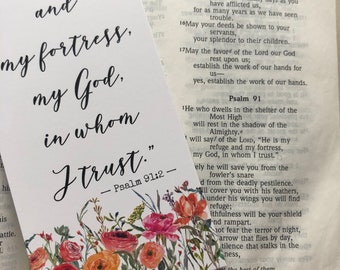 and
my fortress,
my God,
in whom
I trust."
— Psalm 91:2 —
have afflicted us,
for as many years as we have seen
trouble.
16May your deeds be shown to your
servants,
your splendor to their children.
17May the favor of the Lord our God
rest upon us;
establish the work of our hands
for us—
yes, establish the work of our hands.
Psalm 91
1He who dwells in the shelter of the
Most High
will rest in the shadow of the
Almighty.
will say of the LORD, "He is my
refuge and my fortress,
my God, in whom I trust."
rely he will save you from the
fowler's snare
and from the deadly pestilence.
will cover you with his feathers,
under his wings you will find
refuge;
faithfulness will be your shield
and rampart.
not fear the terror of night,
the arrow that flies by day,
pestilence that stalks in the